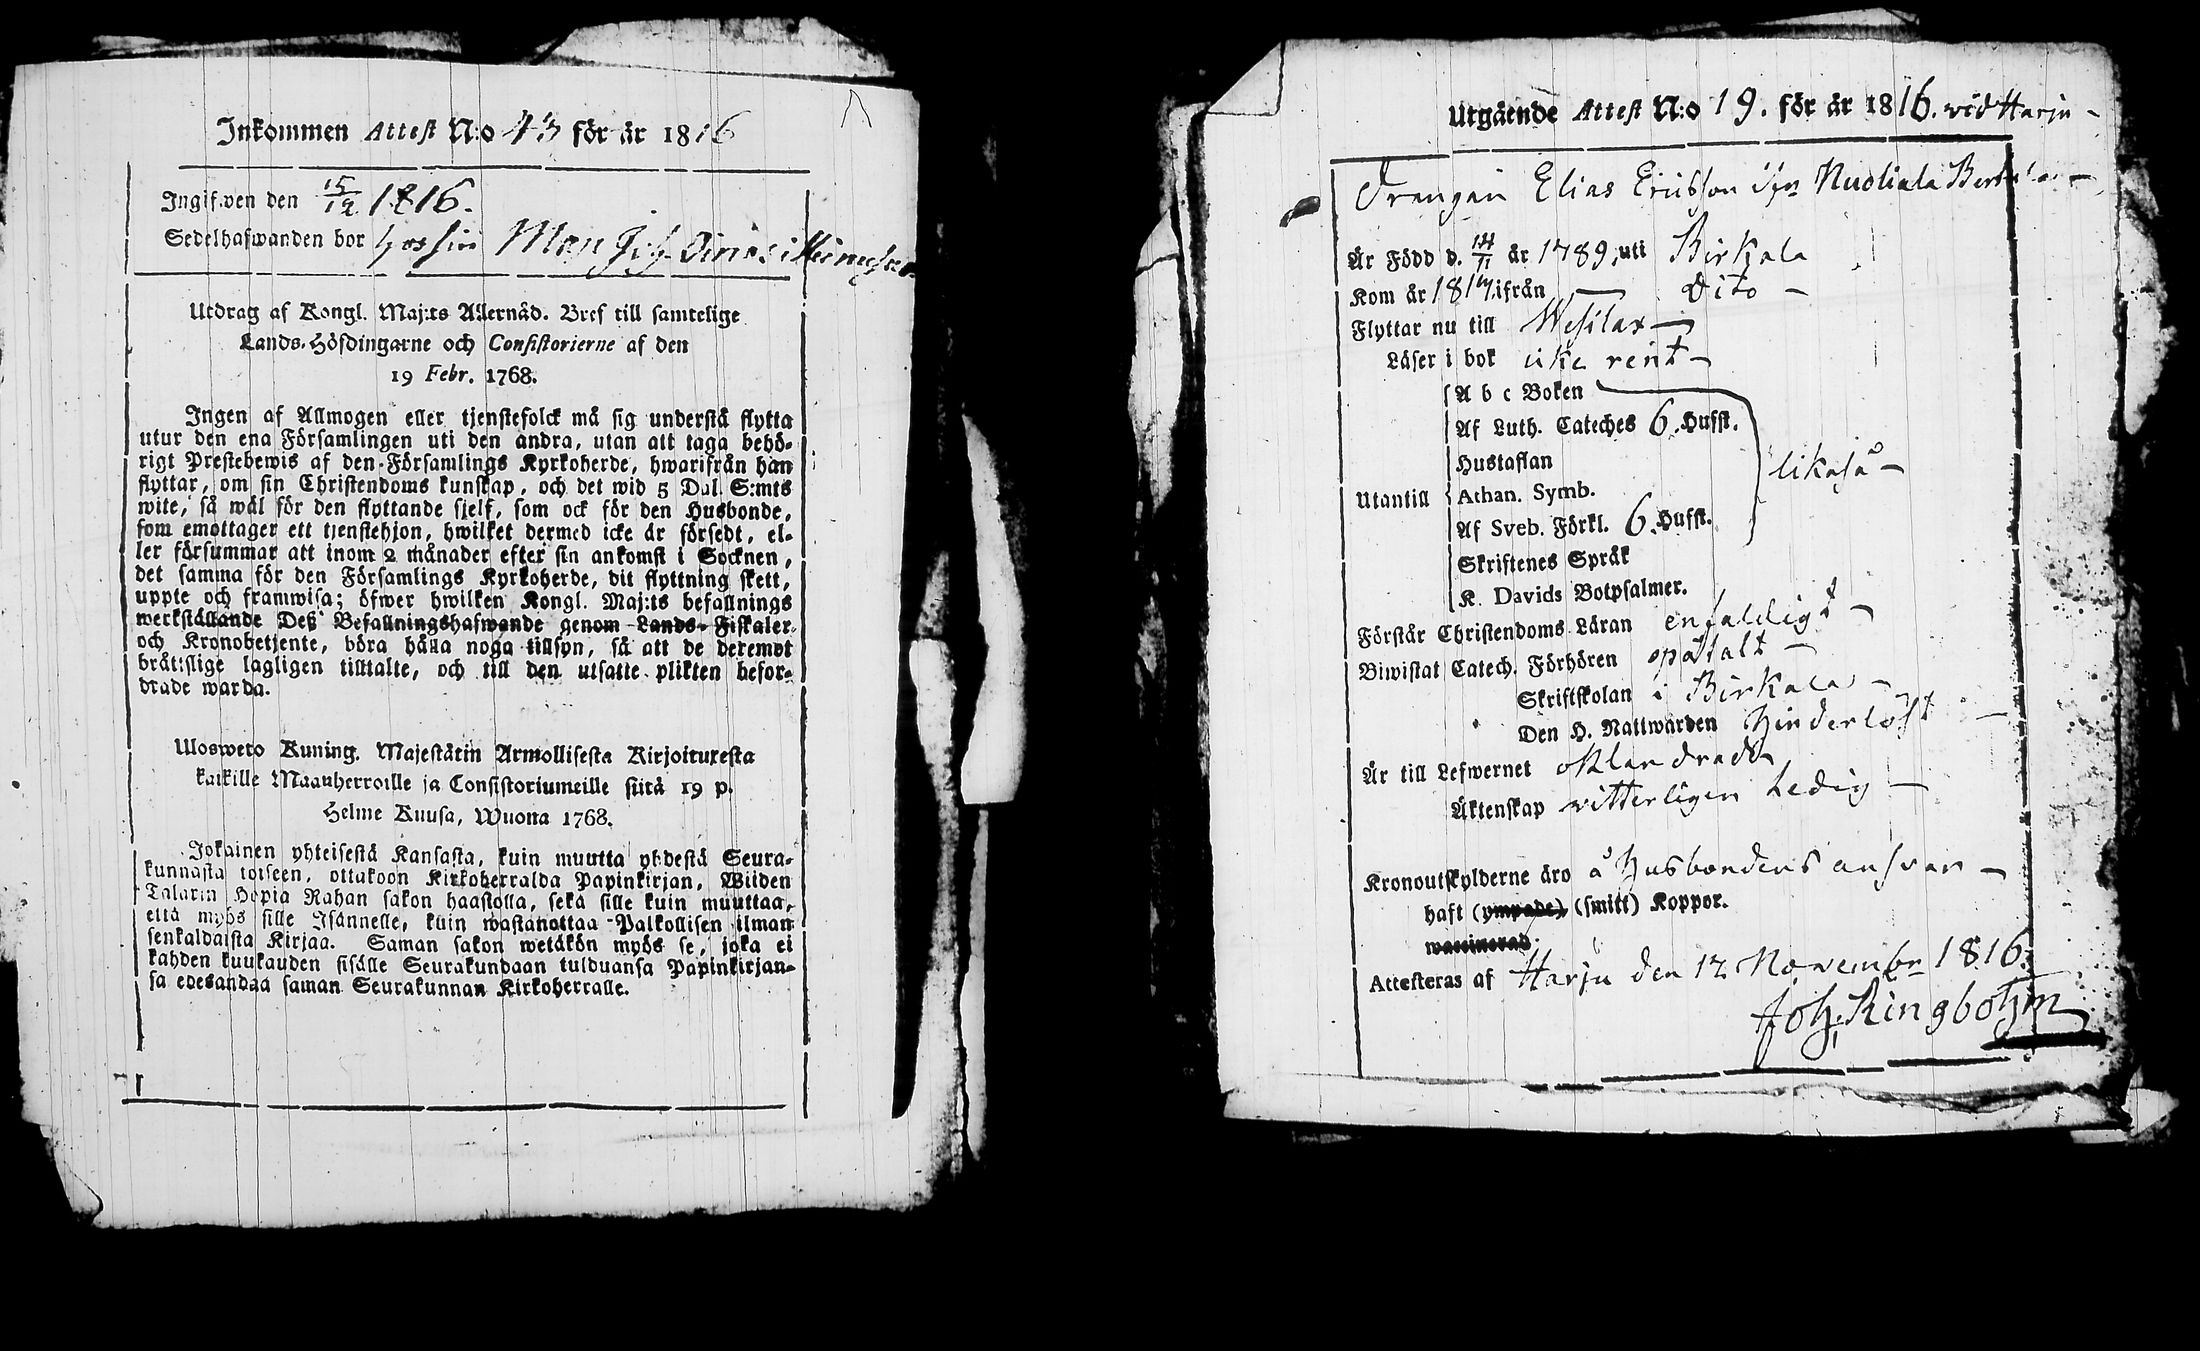 Inkommen Attest N:o 43 för år 1816
Ingifwen den 15/12 1816.
Sedelhafwanden bor hos sin Mag
Utdrag af Kongl. Maj:ts Allernåd. Bref till samtelige
Lands-Höfdingarne och Consistorierne af den
19 Febr. 1768.
Ingen af Allmogen eller tjenstefolck må sig understå flytta
utur den ena Församlingen uti den andra, utan att taga behö-
rigt Prestebewis af den Församlings Kyrkoherde, hwarifrån han
flyttar, om sin Christendoms kunskap, och det wid 5 Dal. S:mts
wite, så wäl för den flyttande sjelf, som ock för den Husbonde,
som emottager ett tjenstehjon, hwilket dermed icke är försedt, el-
ler försummar att inom 2 månader efter sin ankomst i Socknen,
det samma för den Församlings Kyrkoherde, dit flyttning skett,
uppte och framwisa; öfwer hwilken Kongl. Maj:ts befallnings
werkställande Deß Befallningshafwande genom Lands-Fiskaler
och Kronobetjente, böra hålla noga tillsyn, så att de deremot
bråtslige lagligen tilltalte, och till den utsatte plikten befor-
drade warda.
Ulosweto Kuning. Majestätin Armollisesta Kirjoituxesta
kaikille Maanherroille ja Consistoriumeille siitä 19 p.
Helme Kuusa, Wuona 1768.
Jokainen yhteisestä Kansasta, kuin muutta yhdestä Seura-
kunnasta toiseen, ottakoon Kirkoherralda Papinkirjan, Wiiden
Talarin Hopia Rahan sakon haastolla, sekä sille kuin muuttaa,
että myös sille Isännelle, kuin wastanottaa Palkollisen ilman
senkaldaista Kirjaa. Saman sakon wetäkön myös se, joka ei
kahden kuukauden sisälle Seurakundaan tulduansa Papinkirjan-
sa edesandaa saman Seurakunnan Kirkoherralle.
Utgående Attest N:o 19. för år 1816. wid Harju
Drengen Elias Ericsson ifrn Nuoliala
Är Född d. 14/11 år 1789, uti Birkala
Kom år 1817, ifrån — Dito —
Flyttar nu till Wesilax —
Läser i bok icke rent —
Utantill
A b c Boken
Af Luth. Cateches 6. Hufst.
Hustaflan
Athan. Symb.
Af Sveb. Förkl. 6. Hufst.
Skriftenes Språk
K. Davids Botpsalmer.
likaså —
Förstår Christendoms Läran enfaldigt —
Biwistat Catech. Förhören opåtalt —
Skriftskolan i Birkala —
Den H. Nattwarden hinderlöst —
Är till Lefwernet oklandrad
Äktenskap witterligen Ledig —
Kronoutskylderne äro å Husbondens answar —
haft (ympade) (smitt) Koppor.
waccinerad
Attesteras af Harju den 17 Novembr 1816.
Joh. Ringbohm